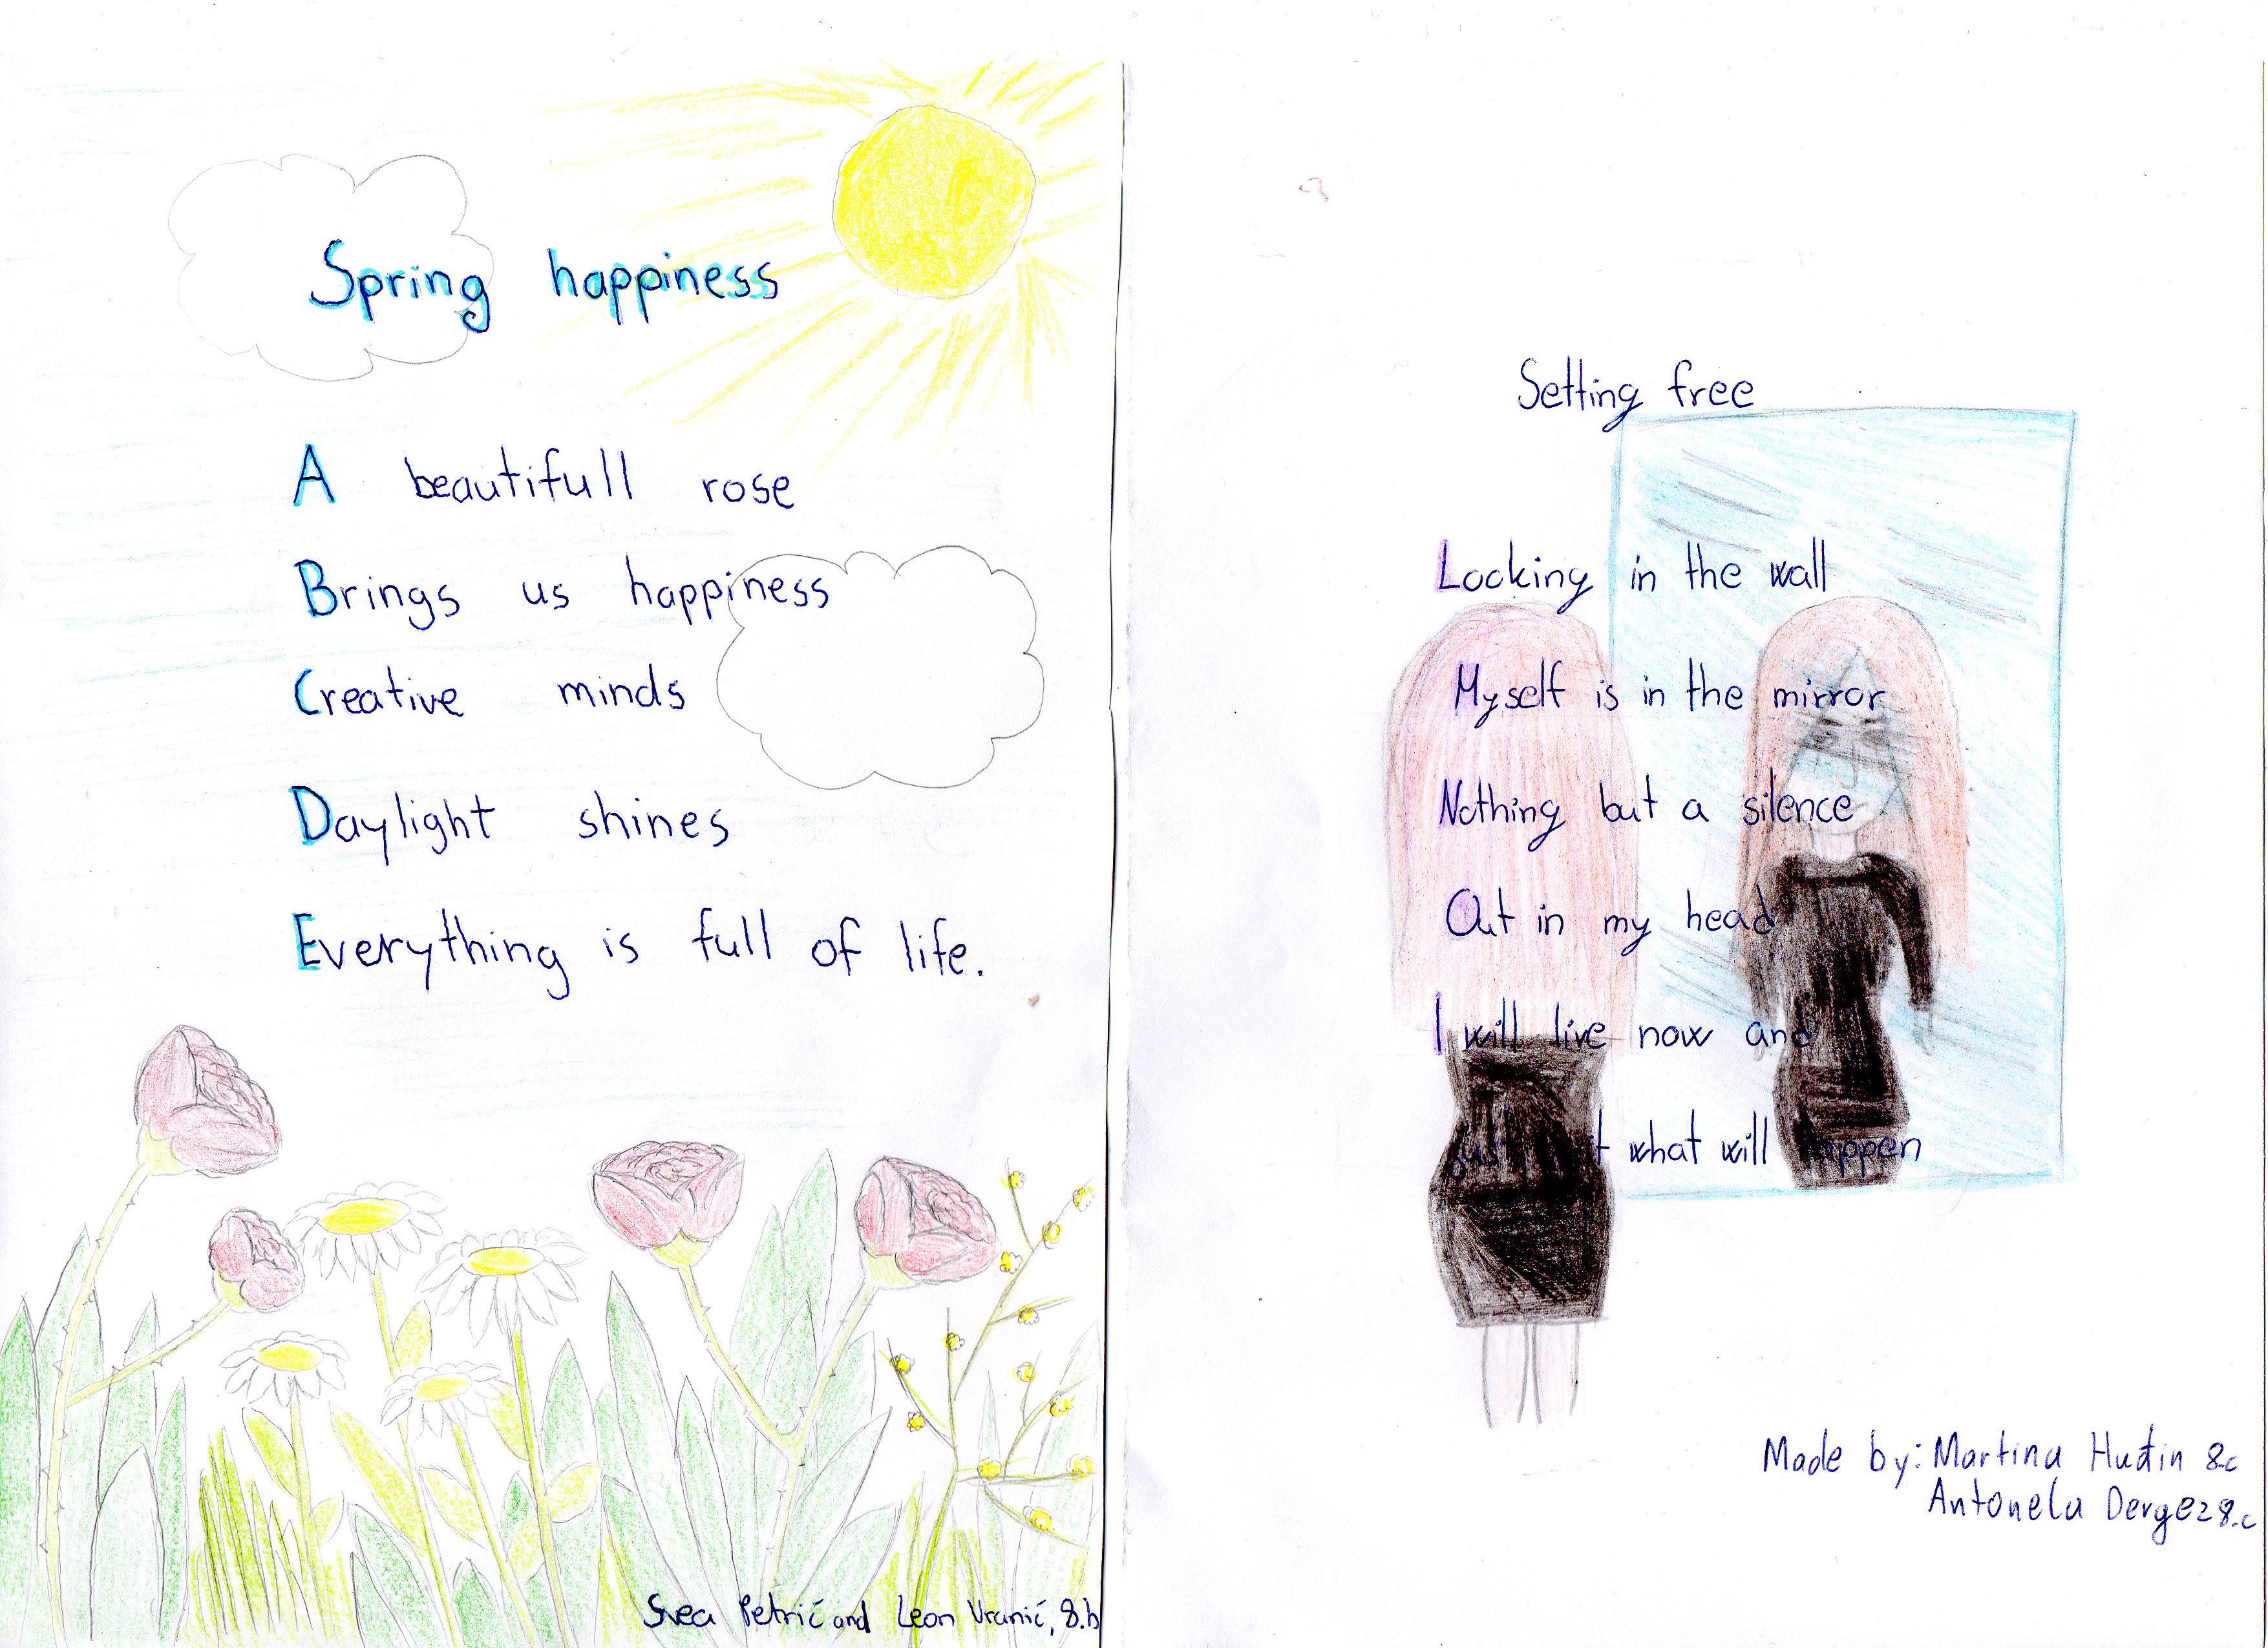 Spring happiness
A beautifull rose
Brings us happiness
Creative minds
Daylight shines
Everything is full of life.
Svea Petrić and Leon Vranić, 8.b
Setting free
Looking in the wall
Myself is in the mirror
Nothing but a silence
Out in my head
I will live now and
what will happen
Made by: Martina Huđin 8.c
Antonela Dergez 8.c